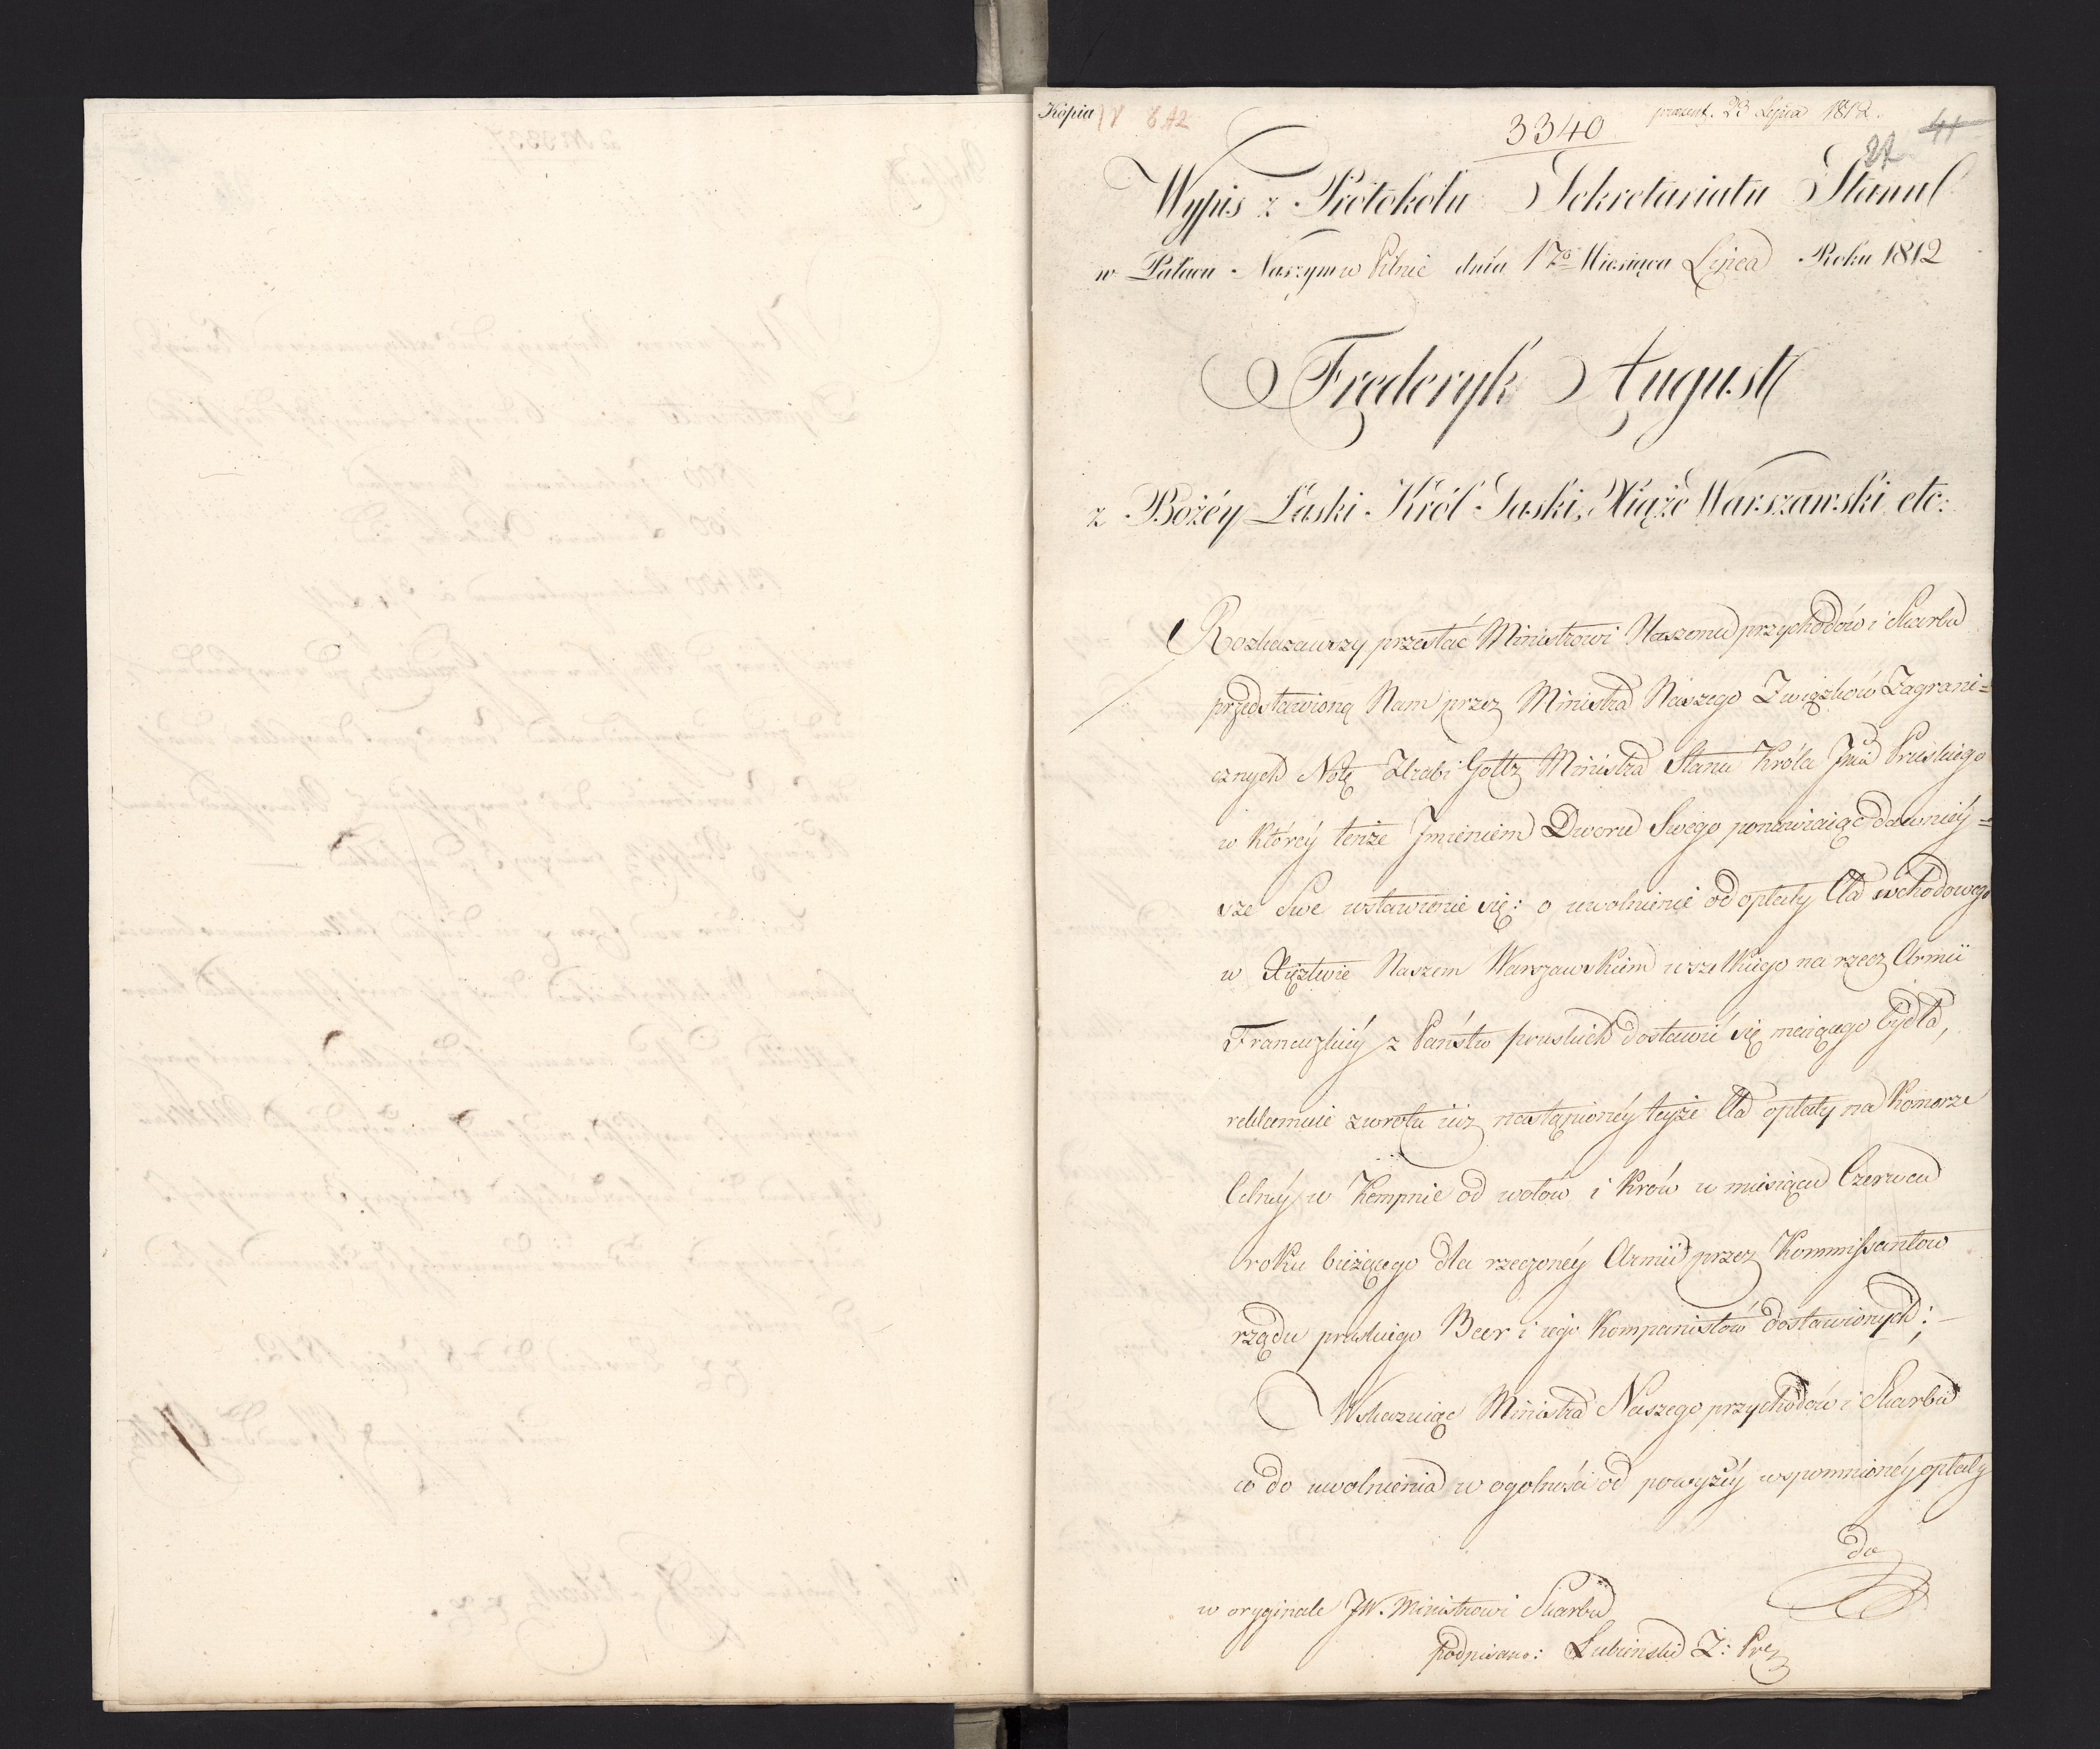 Kopia
3340
prezent. 23 Lipca 1812.
41
Wypis z Protokołu Sekretariatu Stanu
w Pałacu Naszym w Pilnic dnia 17º Miesiąca Lipca Roku 1812
Frederyk August
z Bożéy Łaski Król Saski, Xiąże Warszawski etc:
Rozkazawszy przesłać Ministrowi Naszemu przychodów i Skarbu
przedstawioną Nam przez Ministra Naszego Związków Zagrani=
cznych Notę Hrabi Goltz Ministra Stanu Króla Jmci Pruskiego
w któréy tenże Jmieniem Dworu Swego ponawiaiąc dawniéy=
sze Swe wstawienie się: o uwolnienie od opłaty Cła wchodowego
w Xięztwie Naszem Warszawskiem wszelkiego na rzecz Armii
Francuzkiéy z Państw pruskich dostawić się maiącego bydła,
reklamuie zwrotu iuż nastąpionéy teyże Cła opłaty na Komorze
Celnéy w Kempnie od wołów i krów w miesiącu Czerwcu
roku bieżącego dla rzeczonéy Armii przez Kommissantow
rządu pruskiego Beer i iego Kompanistów dostawionych;
Wskazuiąc Ministra Naszego przychodów i Skarbu
co do uwolnienia w ogolności od powyżéy wspomnionéy opłaty
do
w oryginale JW. Ministrowi Skarbu
podpisano: Łubieński Z: Prez